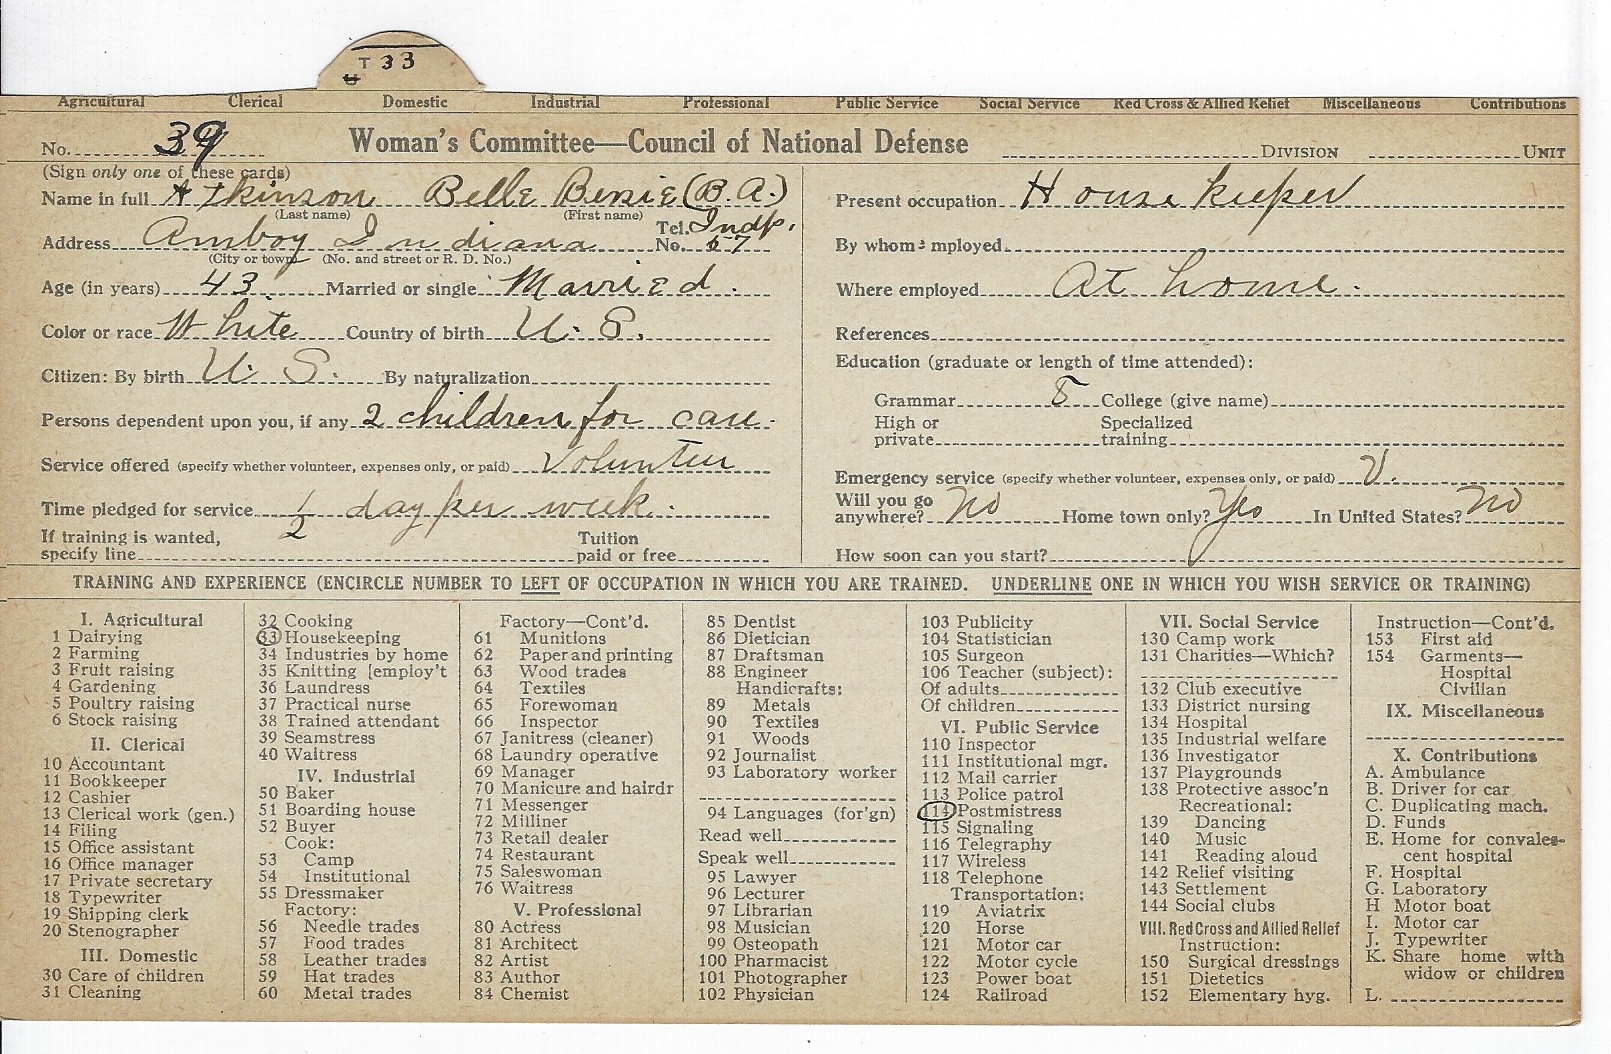 T 33
Agricultural Clerical Domestic Industrial Professional Public Service Social Service Red Cross & Allied Relief Miscellaneous Contributions
No. 39 Woman's Committee—Council of National Defense DIVISION UNIT
(Sign only one of these cards)
Name in full Atkinson Belle Benie (B.A.)
(Last name) (First name)
Address Amboy Indiana Tel. No. Indp. 67
(City or town) (No. and street or R. D. No.)
Age (in years) 43. Married or single Married.
Color or race White Country of birth U. S.
Citizen: By birth U. S. By naturalization
Persons dependent upon you, if any 2 children for care.
Service offered (specify whether volunteer, expenses only, or paid) Volunteer
Time pledged for service 1/2 day per week.
If training is wanted,
specify line Tuition paid or free
Present occupation Housekeeper
By whom employed
Where employed At home.
References
Education (graduate or length of time attended):
Grammar 8 College (give name)
High or private Specialized training
Emergency service (specify whether volunteer, expenses only, or paid) V.
Will you go anywhere? No Home town only? Yes In United States? No
How soon can you start?
TRAINING AND EXPERIENCE (ENCIRCLE NUMBER TO LEFT OF OCCUPATION IN WHICH YOU ARE TRAINED. UNDERLINE ONE IN WHICH YOU WISH SERVICE OR TRAINING)
I. Agricultural
1 Dairying
2 Farming
3 Fruit raising
4 Gardening
5 Poultry raising
6 Stock raising
II. Clerical
10 Accountant
11 Bookkeeper
12 Cashier
13 Clerical work (gen.)
14 Filing
15 Office assistant
16 Office manager
17 Private secretary
18 Typewriter
19 Shipping clerk
20 Stenographer
III. Domestic
30 Care of children
31 Cleaning
32 Cooking
33 Housekeeping
34 Industries by home
35 Knitting [employ't
36 Laundress
37 Practical nurse
38 Trained attendant
39 Seamstress
40 Waitress
IV. Industrial
50 Baker
51 Boarding house
52 Buyer
Cook:
53 Camp
54 Institutional
55 Dressmaker
Factory:
56 Needle trades
57 Food trades
58 Leather trades
59 Hat trades
60 Metal trades
Factory—Cont'd.
61 Munitions
62 Paper and printing
63 Wood trades
64 Textiles
65 Forewoman
66 Inspector
67 Janitress (cleaner)
68 Laundry operative
69 Manager
70 Manicure and hairdr
71 Messenger
72 Milliner
73 Retail dealer
74 Restaurant
75 Saleswoman
76 Waitress
V. Professional
80 Actress
81 Architect
82 Artist
83 Author
84 Chemist
85 Dentist
86 Dietician
87 Draftsman
88 Engineer
Handicrafts:
89 Metals
90 Textiles
91 Woods
92 Journalist
93 Laboratory worker
94 Languages (for'gn)
Read well
Speak well
95 Lawyer
96 Lecturer
97 Librarian
98 Musician
99 Osteopath
100 Pharmacist
101 Photographer
102 Physician
103 Publicity
104 Statistician
105 Surgeon
106 Teacher (subject):
Of adults
Of children
VI. Public Service
110 Inspector
111 Institutional mgr.
112 Mail carrier
113 Police patrol
114 Postmistress
115 Signaling
116 Telegraphy
117 Wireless
118 Telephone
Transportation:
119 Aviatrix
120 Horse
121 Motor car
122 Motor cycle
123 Power boat
124 Railroad
VII. Social Service
130 Camp work
131 Charities—Which?
132 Club executive
133 District nursing
134 Hospital
135 Industrial welfare
136 Investigator
137 Playgrounds
138 Protective assoc'n
Recreational:
139 Dancing
140 Music
141 Reading aloud
142 Relief visiting
143 Settlement
144 Social clubs
VIII. Red Cross and Allied Relief
Instruction:
150 Surgical dressings
151 Dietetics
152 Elementary hyg.
Instruction—Cont'd.
153 First aid
154 Garments—
Hospital
Civilian
IX. Miscellaneous
X. Contributions
A. Ambulance
B. Driver for car
C. Duplicating mach.
D. Funds
E. Home for convales-
cent hospital
F. Hospital
G. Laboratory
H Motor boat
I. Motor car
J. Typewriter
K. Share home with
widow or children
L.